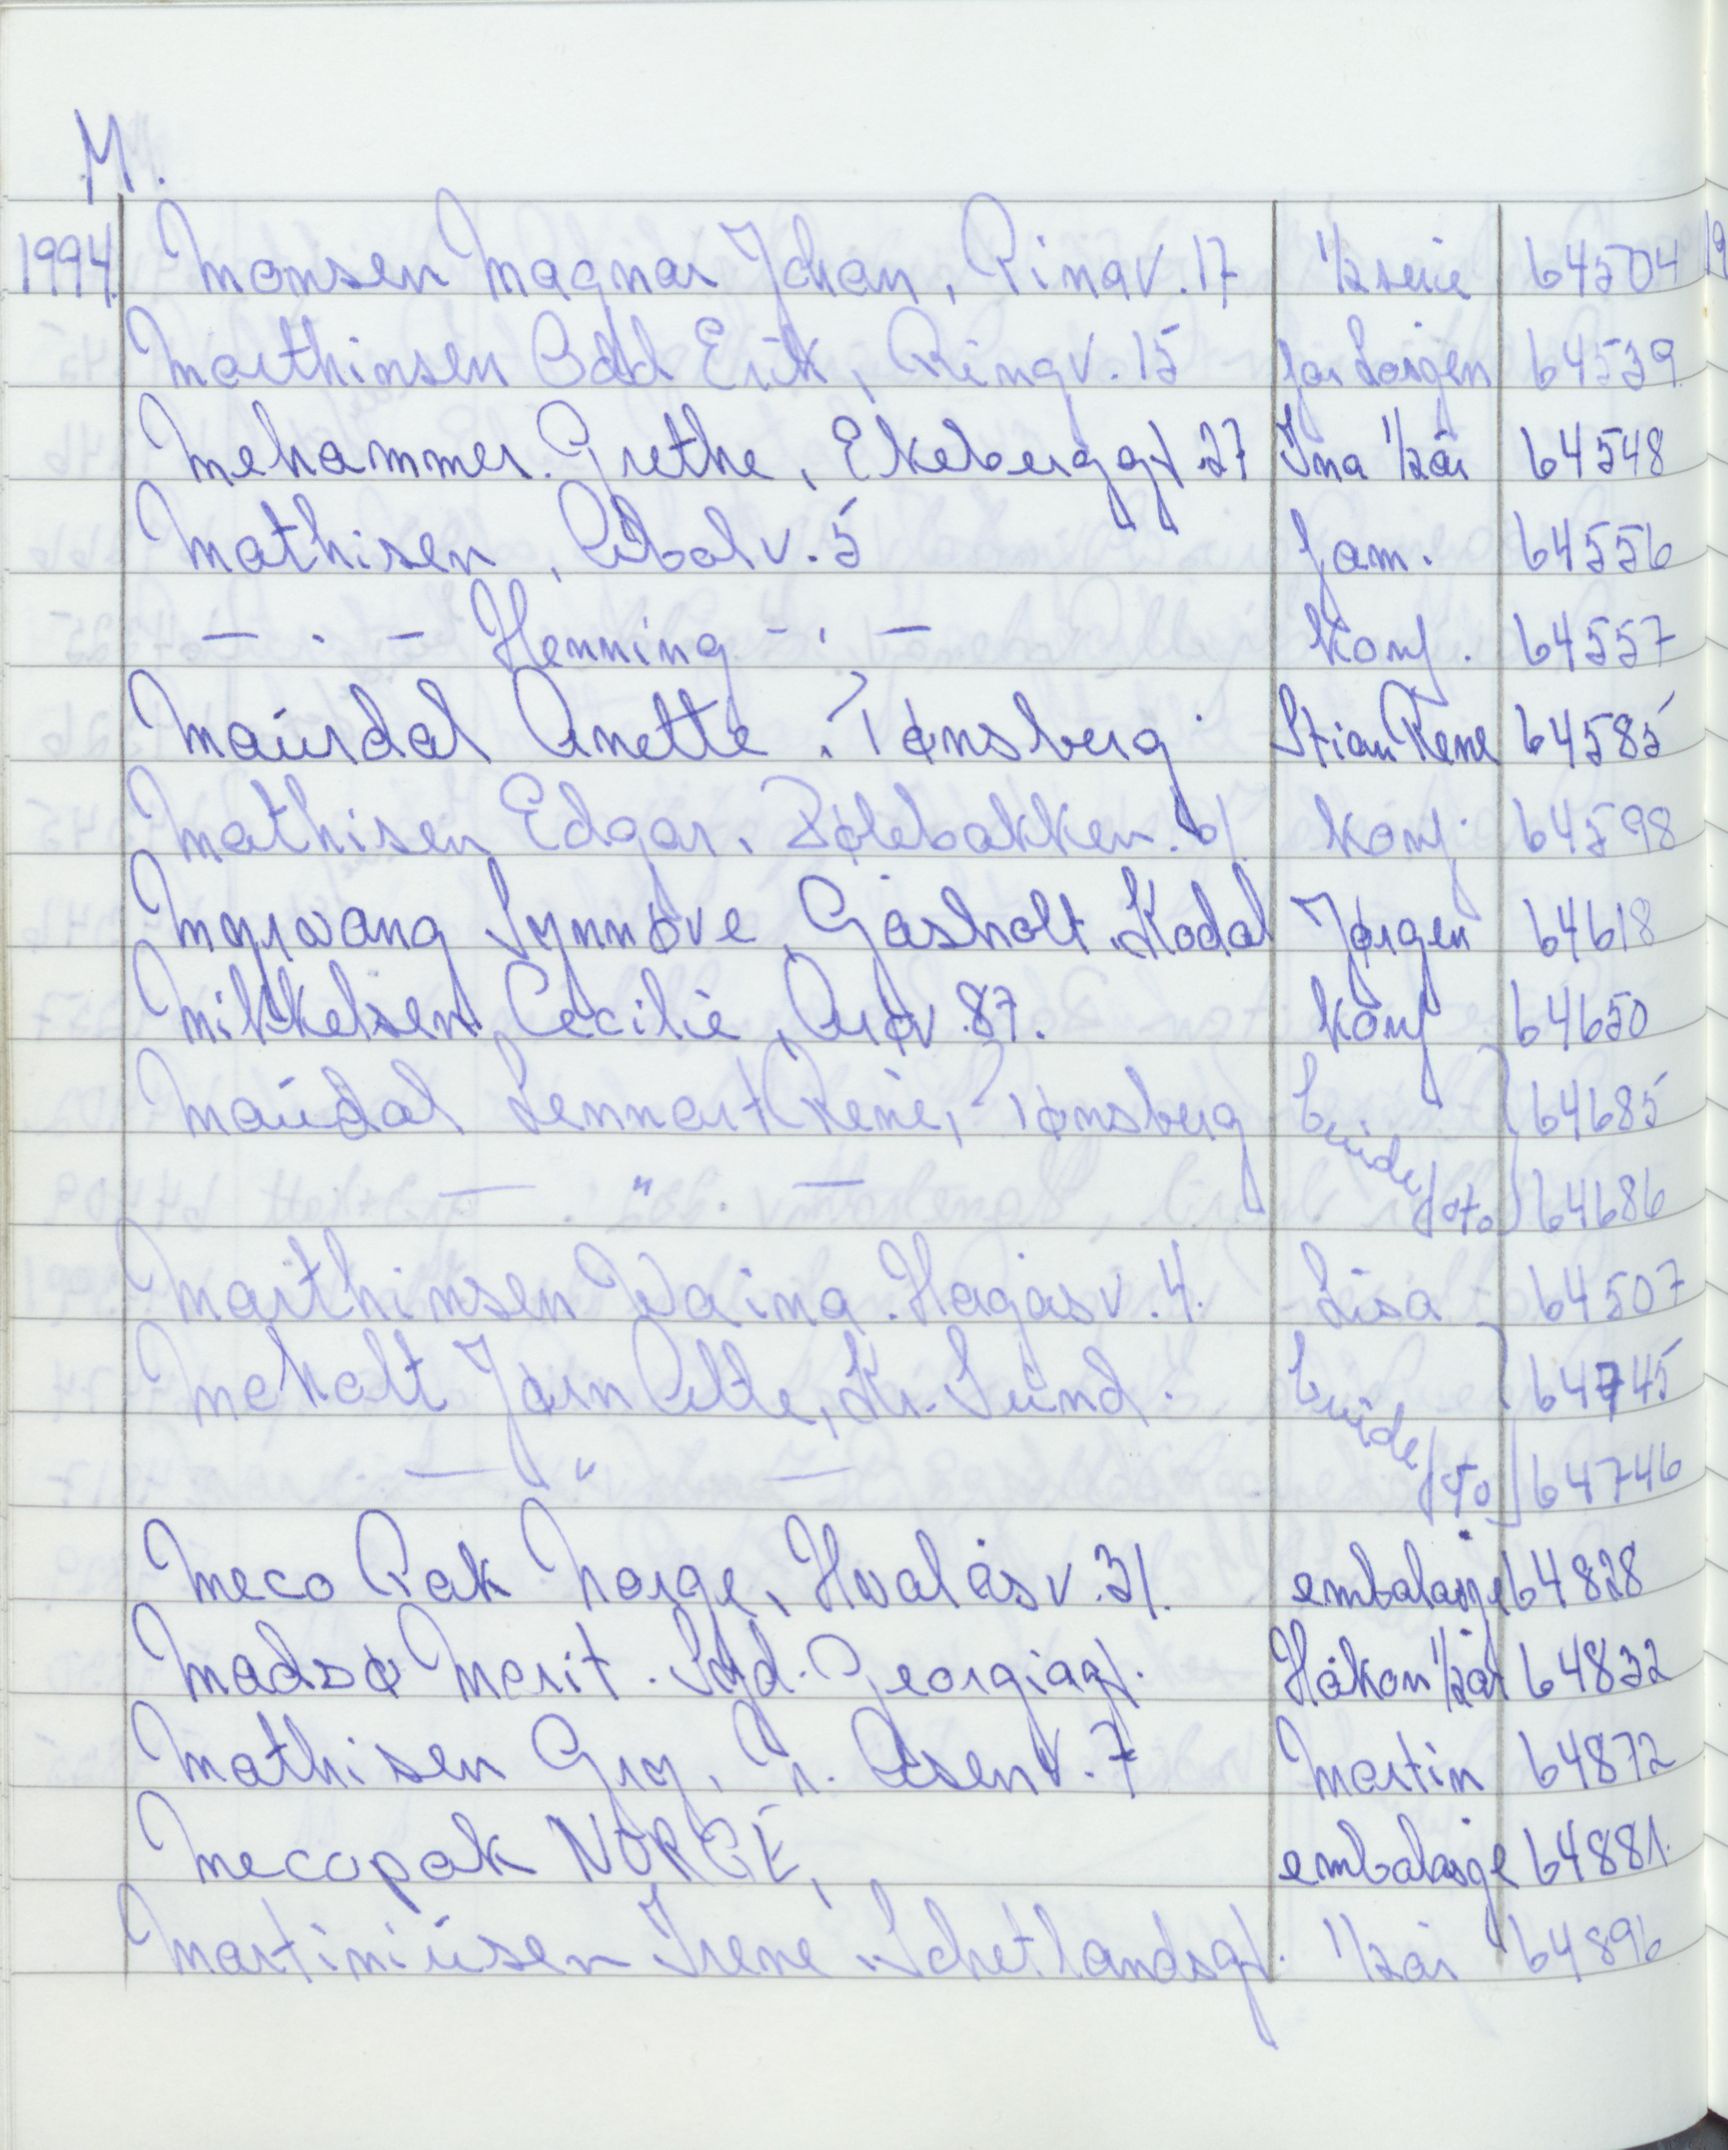 M.
1994. Monsen Magnar Johan, Ringv. 17 1/2 serie 64504
Marthinsen Odd Erik, Ringv. 15 64539
Mehammer Grethe, Ekeberggt 27 Ina 1/2 år 64548
Mathisen, v. 5 fam. 64556
— . — Henning — . — konf. 64557
Maúrdal Anette, Tønsberg Stian Rene 64585
Mathisen Edgar, Bølebakken 61 konf. 64598
Myrvang Synnøve, Gåsholt, Kodal Jørgen 64618
Mikkelsen Cecilie, Orøv. 87. konf 64650
Maúdal Lennart Rene, Tønsberg brude 64685
— " — foto 64686
Marthinsen Waina. Hagåsv. 4. Lisa 64507
Mekalt Jørn Atle, Kr. Súnd. brude 64745
— " — foto 64746
Meco Pak Norge, Hvalåsv. 31. embalasje 64828
Madsø Merit. Syd. Georgiagt. Håkon 1/2 år 64832
Mathisen Gry, N. Åsenv. 7 Martin 64872
Mecopak NORGE, embalasje 64881.
Martiniúsen Irene, Schetlandsgt. 1/2 år 64896